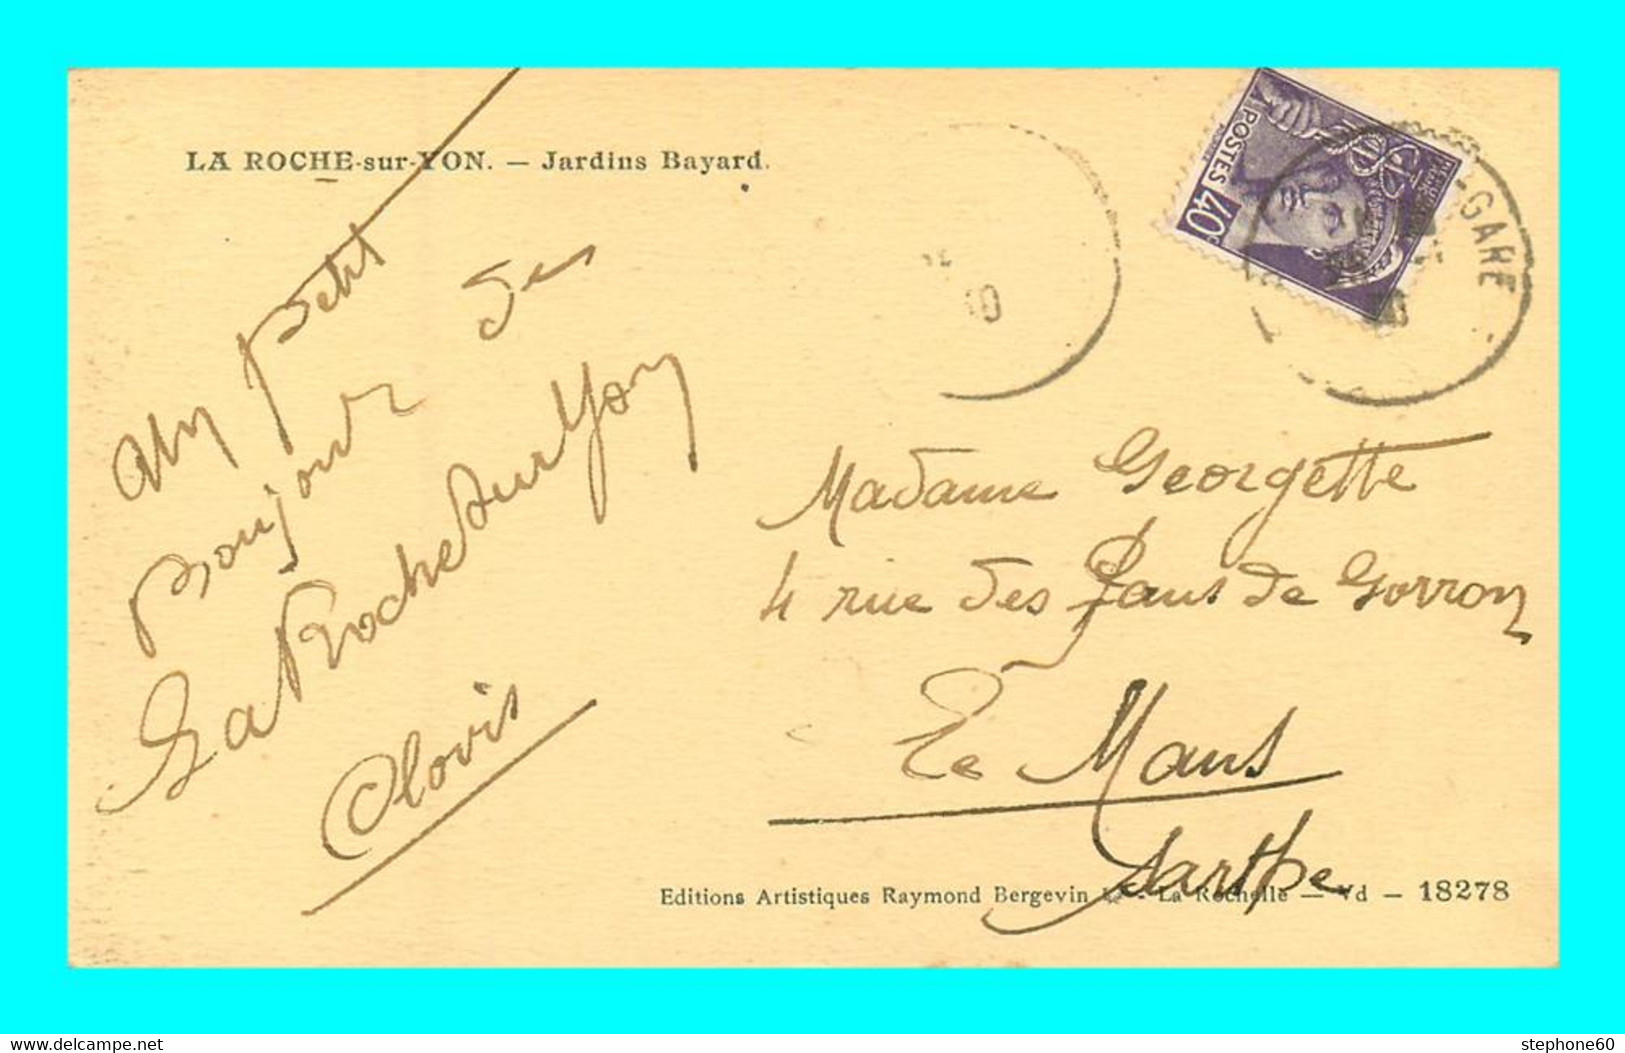 LA ROCHE-sur-YON. — Jardins Bayard.
POSTES
40c
-GARE
40
Un petit
bonjour de
La Roche sur Yon
Clovis
Madame Georgette
4 rue des Sans de Gorron
Le Mans
Sarthe
Editions Artistiques Raymond Bergevin - La Rochelle — Vd — 18278
www.delcampe.net
stephone60